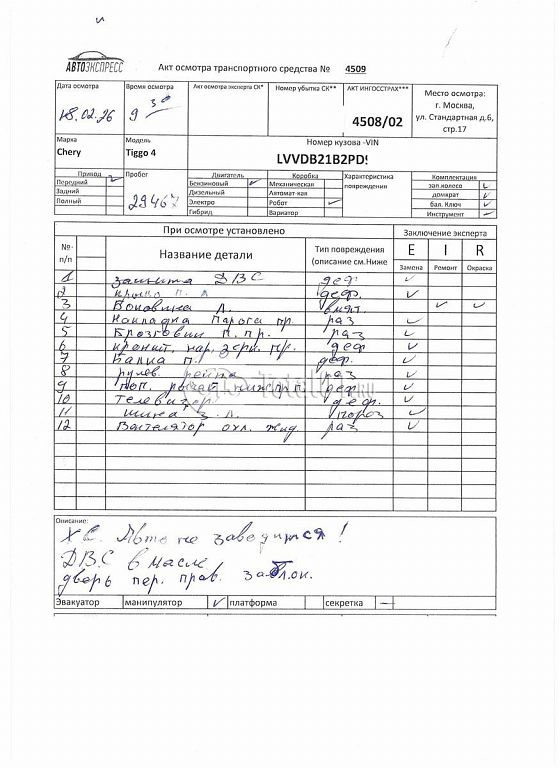 АВТОЭКСПРЕСС
Акт осмотра транспортного средства № 4509
Дата осмотра Время осмотра Акт осмотра эксперта СК* Номер убытка СК** АКТ ИНГОССТРАХ*** Место осмотра:
18.02.26 9 30 4508/02 г. Москва,
ул. Стандартная д.6,
стр.17
Марка Модель Номер кузова -VIN
Chery Tiggo 4 LVVDB21B2PD
Привод Пробег Двигатель Коробка Характеристика повреждения Комплектация
Передний Бензиновый Механическая зап колесо
Задний Дизельный Автомат-кая домкрат
Полный 29467 Электро Робот бал. Ключ
Гибрид Вариатор Инструмент
При осмотре установлено Заключение эксперта
№ п/п Название детали Тип повреждения (описание см.Ниже E I R
Замена Ремонт Окраска
1 защита ДВС деф
2 крыло п. л деф.
3 Боковина Л. вмят.
4 Накладка Порога пр. раз
5 Брозговик п. пр. раз
6 кронит. нар. зерк. пр. деф
7 Балка п. деф.
8 рулев. рейка раз
9 поп. рычаг нижн п.п деф
10 телевизор деф.
11 шина з. л. пороз
12 Вентелятор охл. жид. раз
Описание:
Х.С. Авто не заводится!
ДВС в масле
дверь пер. прав. заблок.
Эвакуатор манипулятор платформа секретка